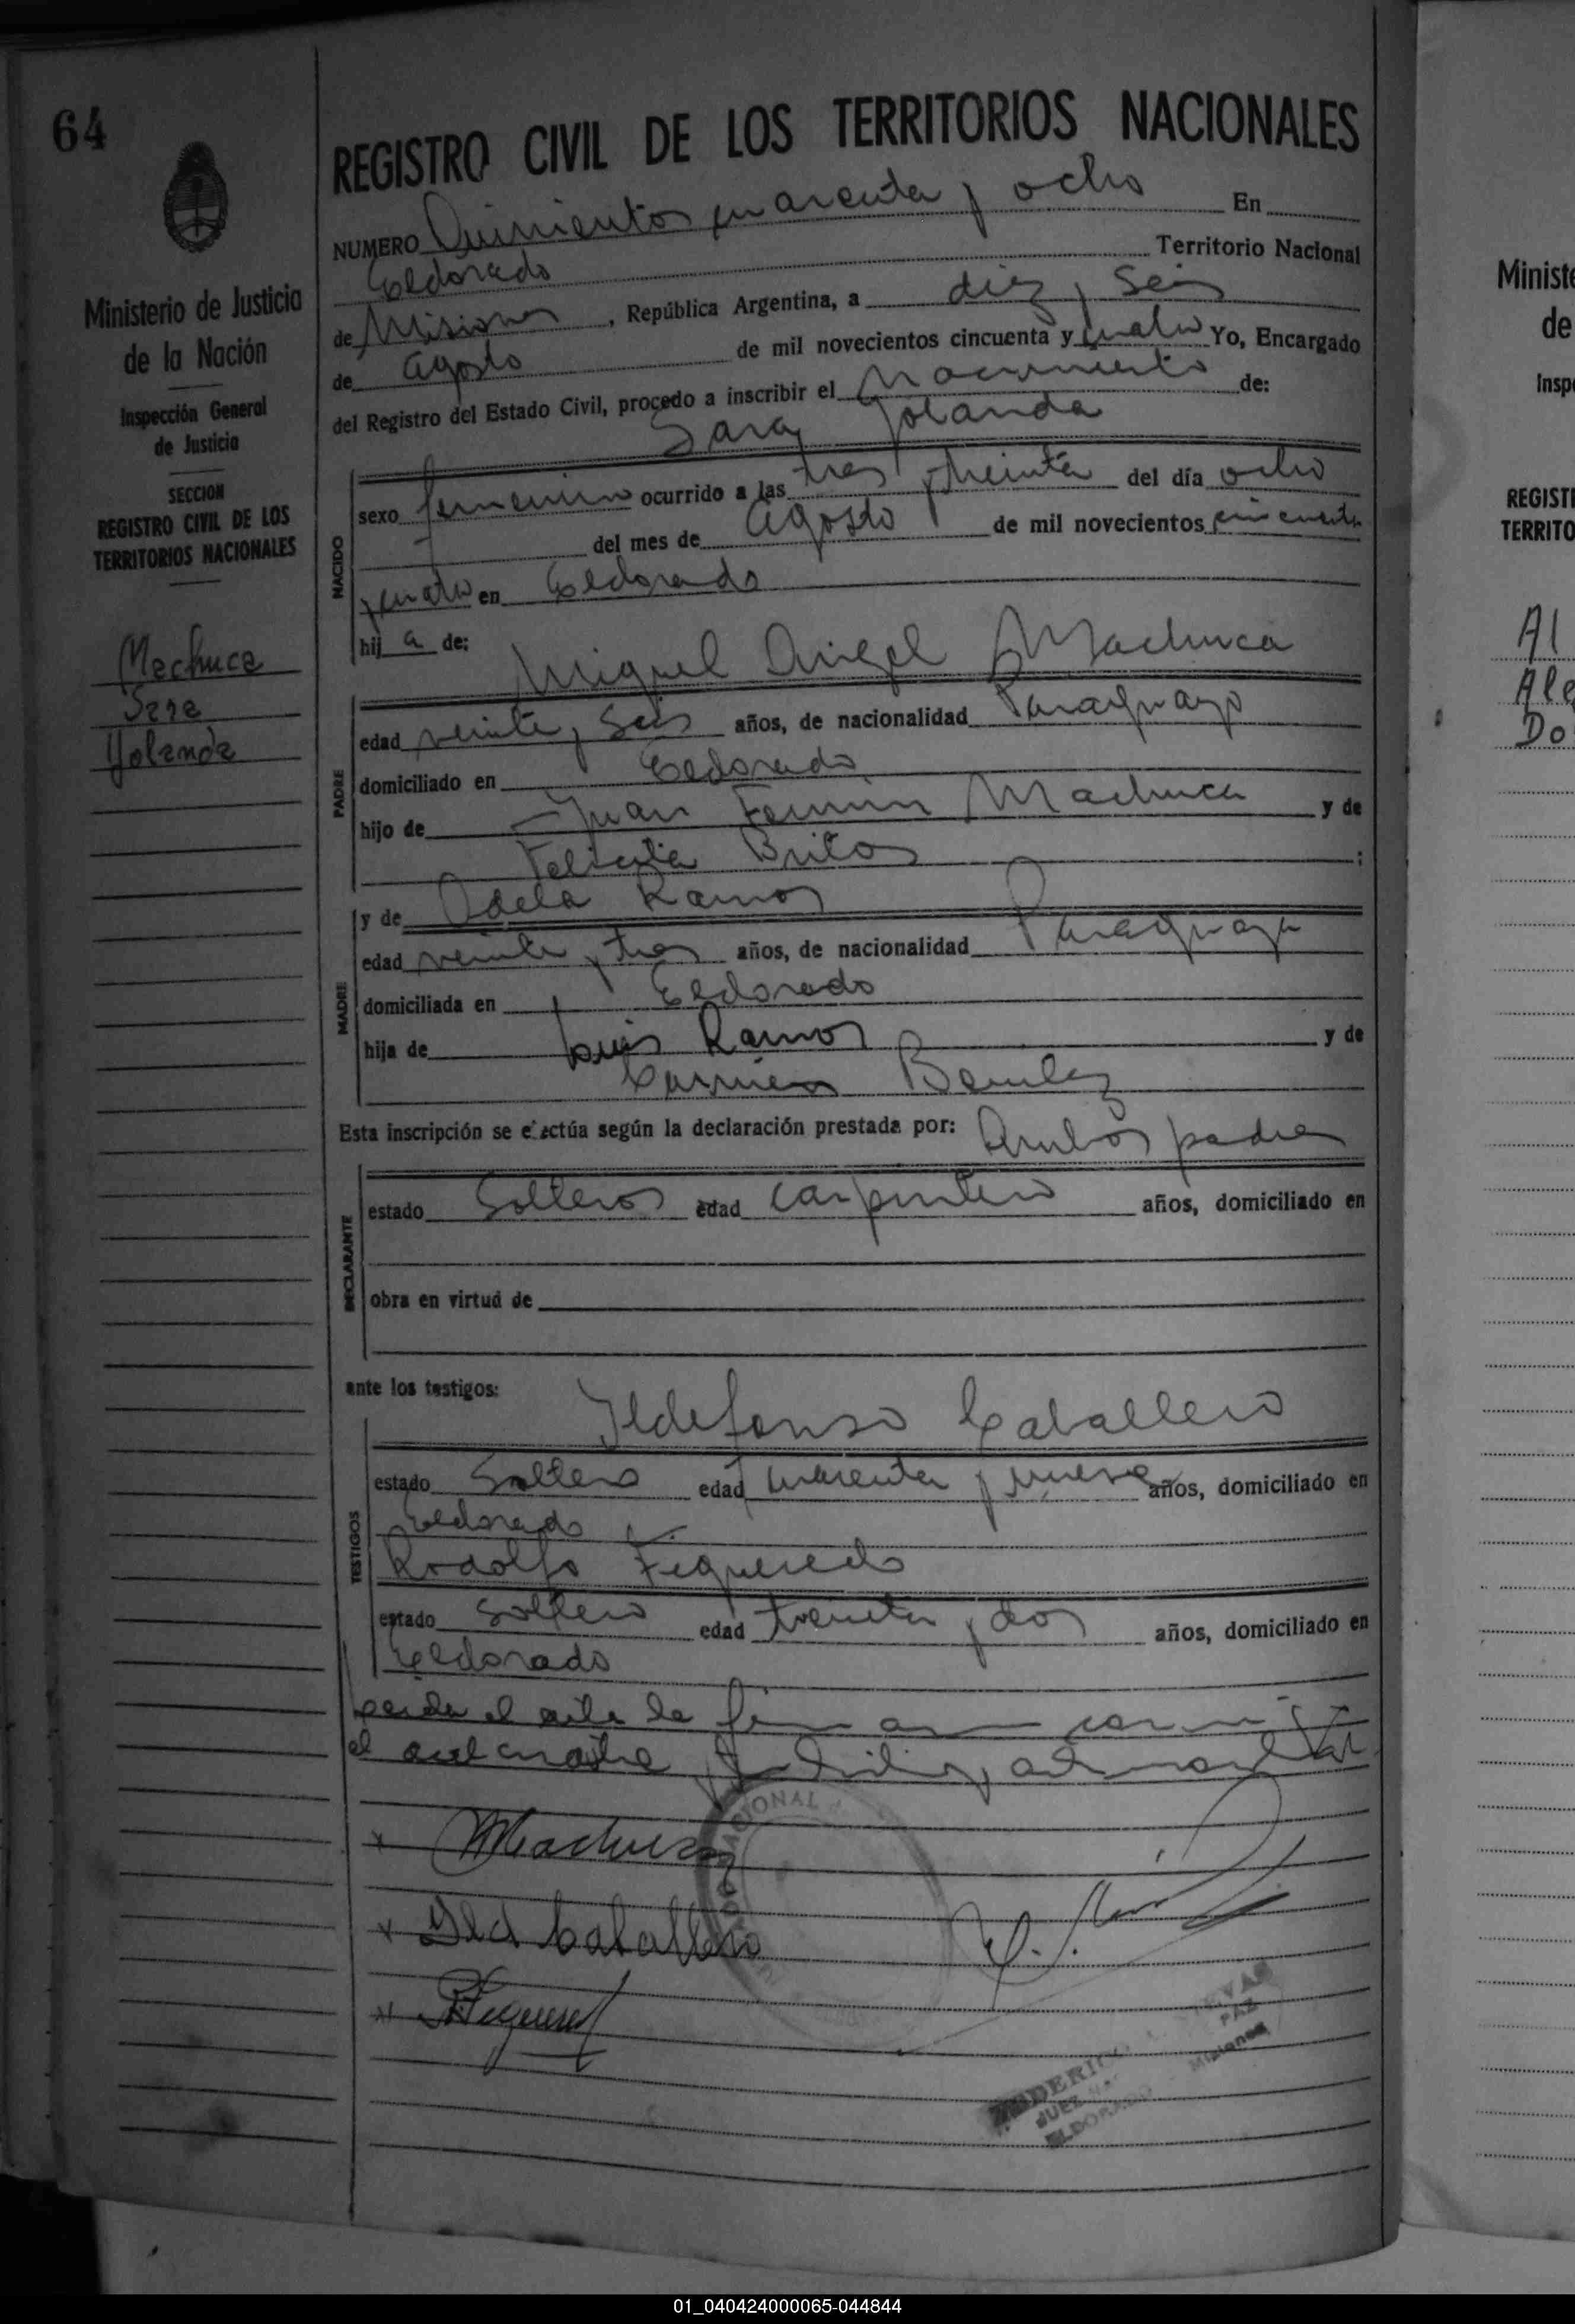 64
Ministerio de Justicia
de la Nación
Inspección General
de Justicia
SECCION
REGISTRO CIVIL DE LOS
TERRITORIOS NACIONALES
Machuca
Sara
Yolanda
REGISTRO CIVIL DE LOS TERRITORIOS NACIONALES
NUMERO Quinientos cuarenta y ocho En
Eldorado Territorio Nacional
de Misiones, República Argentina, a diez y seis
de agosto de mil novecientos cincuenta y cuatro Yo, Encargado
del Registro del Estado Civil, procedo a inscribir el Nacimiento de:
Sara Yolanda
NACIDO
sexo femenino ocurrido a las tres y treinta del día ocho
del mes de agosto de mil novecientos cincuenta
y cuatro en Eldorado
hija de: Miguel Angel Machuca
PADRE
edad veinte y seis años, de nacionalidad Paraguayo
domiciliado en Eldorado
hijo de Juan Fermin Machuca y de
Felicita Britos ;
MADRE
y de Adela Ramos
edad veinte y tres años, de nacionalidad Paraguaya
domiciliada en Eldorado
hija de Luis Ramos y de
Benitez
Esta inscripción se efectúa según la declaración prestada por: Ambos padres
DECLARANTE
estado Solteros edad carpintero años, domiciliado en
obra en virtud de
ante los testigos: Ildefonso Caballero
TESTIGOS
estado Soltero edad cuarenta y nueve años, domiciliado en
Eldorado
Rodolfo Figueredo
estado soltero edad treinta y dos años, domiciliado en
Eldorado
el acta la
el
Machuca
Ild Caballero
RFiguered
CIONAL
JUEZ PAZ
ELDORADO Misiones
Ministe
de
Inspe
REGISTR
TERRITO
Al
Ale
Do
01_040424000065-044844